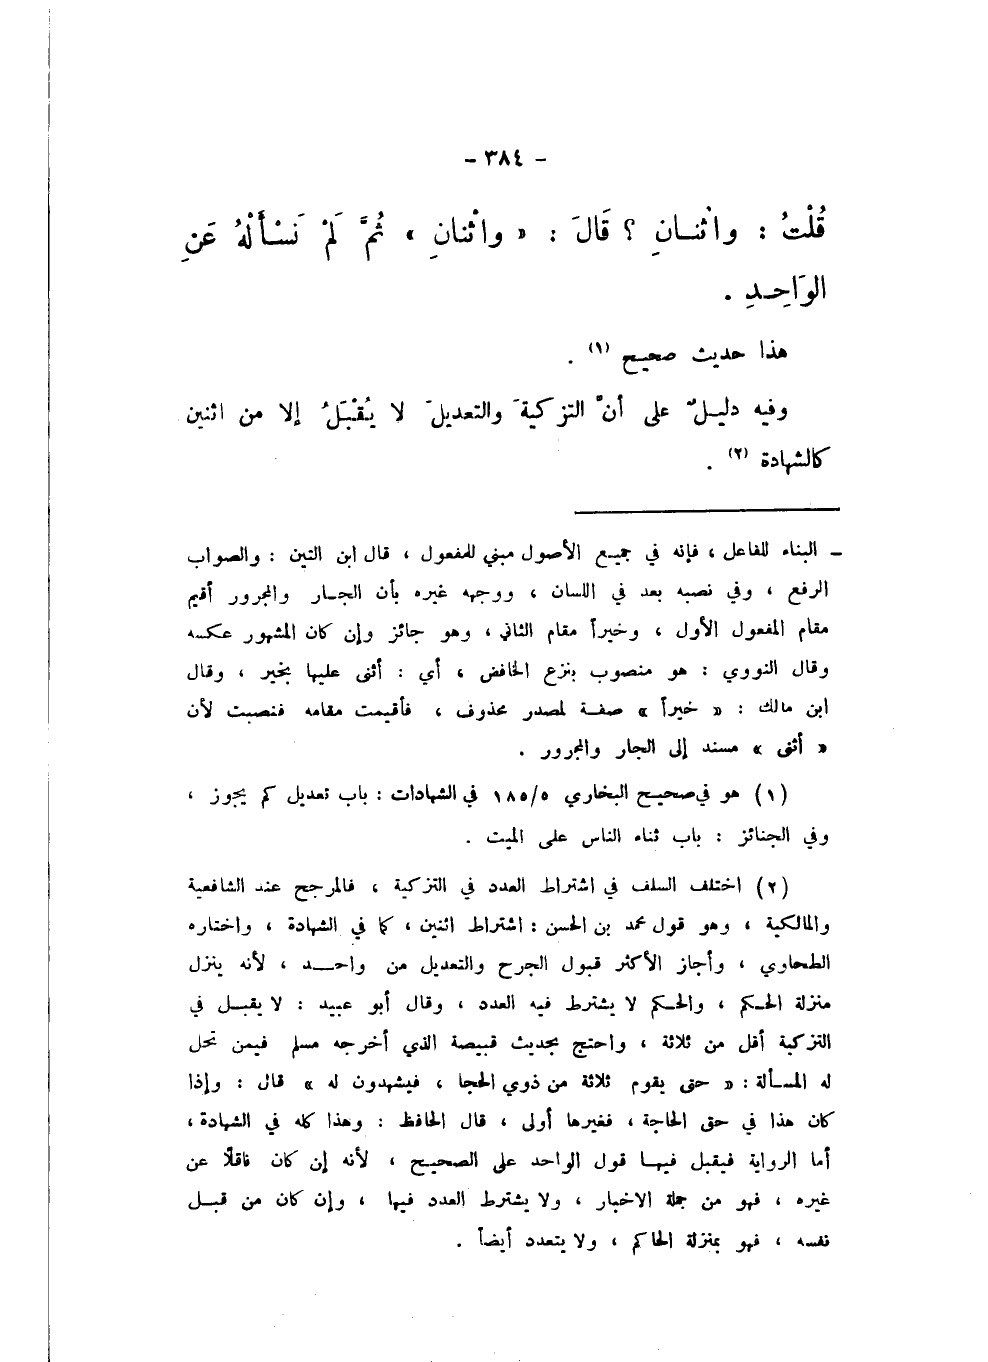 - ٣٨٤ -
قُلْتُ : واثْنـانِ ؟ قَالَ : « واثْنانِ » ثُمَّ لَمْ نَسْأَلْهُ عَنِ
الوَاحِـدِ .
هذا حديث صحيح (١) .
وفيه دليلٌ على أنَّ التزكيةَ والتعديلَ لا يُقْبَلُ إلا من اثنين
كالشهادة (٢) .
ـ البناء للفاعل ، فإنه في جميع الأصول مبني للمفعول ، قال ابن التين : والصواب
الرفع ، وفي نصبه بعد في اللسان ، ووجهه غيره بأن الجـار والمجرور أقيم
مقام المفعول الأول ، وخيراً مقام الثاني ، وهو جائز وإن كان المشهور عكسه
وقال النووي : هو منصوب بنزع الخافض ، أي : أثنى عليها بخير ، وقال
ابن مالك : « خيراً » صفـة لمصدر محذوف ، فأقيمت مقامه فنصبت لأن
« أثنى » مسند إلى الجار والمجرور .
(١) هو في صحيح البخاري ١٨٥/٥ في الشهادات : باب تعديل كم يجوز ،
وفي الجنائز : باب ثناء الناس على الميت .
(٢) اختلف السلف في اشتراط العدد في التزكية ، فالمرجح عند الشافعية
والمالكية ، وهو قول محمد بن الحسن : اشتراط اثنين ، كما في الشهادة ، واختاره
الطحاوي ، وأجاز الأكثر قبول الجرح والتعديل من واحـــد ، لأنه ينزل
منزلة الحـكم ، والحـكم لا يشترط فيه العدد ، وقال أبو عبيد : لا يقبـل في
التزكية أقل من ثلاثة ، واحتج بحديث قبيصة الذي أخرجه مسلم فيمن تحل
له المسـألة : « حتى يقوم ثلاثة من ذوي الحجا ، فيشهدون له » قال : وإذا
كان هذا في حق الحاجة ، فغيرها أولى ، قال الحافظ : وهذا كله في الشهادة ،
أما الرواية فيقبل فيهـا قول الواحد على الصحيح ، لأنه إن كان ناقلًا عن
غيره ، فهو من جملة الاخبار ، ولا يشترط العدد فيها ، وإن كان من قبـل
نفسه ، فهو بمنزلة الحاكم ، ولا يتعدد أيضاً .